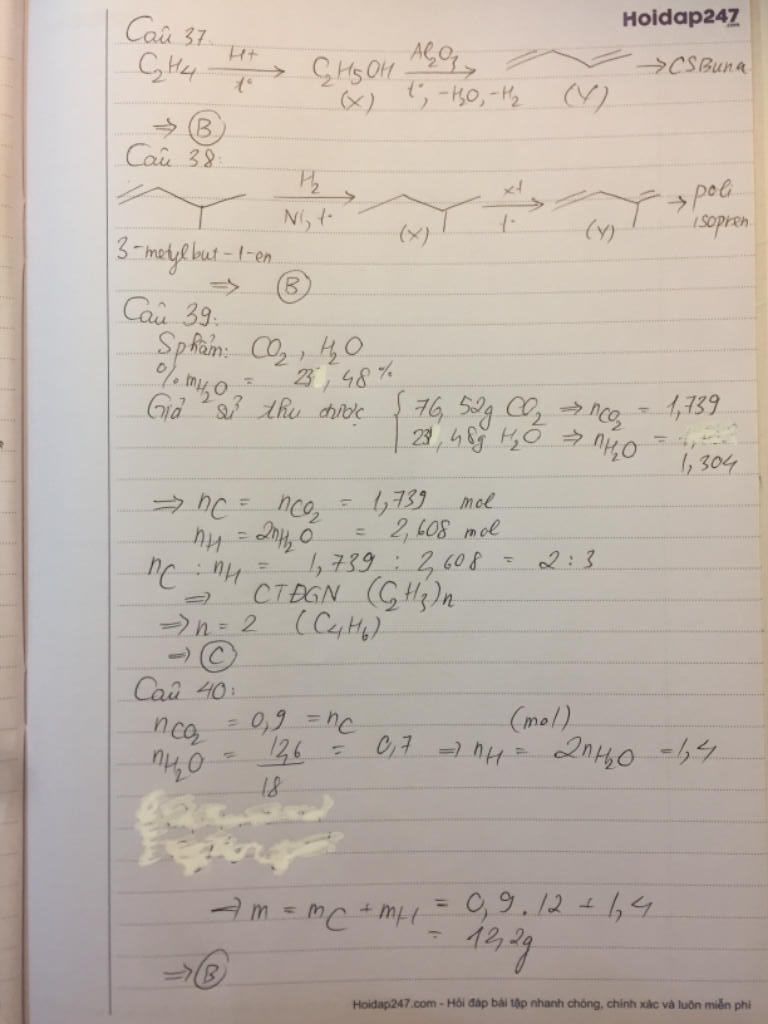 Hoidap247
.com
Câu 37.
C₂H₄ H+ t° → C₂H₅OH Al₂O₃ t°, -H₂O, -H₂ → → CSBuna
(X) (Y)
⇒ B
Câu 38:
H₂ Ni, t° → xt t° → → poli
isopren
(X) (Y)
3-metylbut-1-en
⇒ B
Câu 39:
Sphẩm: CO₂, H₂O
%mH₂O = 23,48%
Giả sử thu được { 76,52g CO₂ ⇒ nCO₂ = 1,739
23,48g H₂O ⇒ nH₂O =
1,304
⇒ nC = nCO₂ = 1,739 mol
nH = 2nH₂O = 2,608 mol
nC : nH = 1,739 : 2,608 = 2:3
⇒ CTĐGN (C₂H₃)n
⇒ n = 2 (C₄H₆)
⇒ C
Câu 40:
nCO₂ = 0,9 = nC (mol)
nH₂O = 12,6/18 = 0,7 ⇒ nH = 2nH₂O = 1,4
⇒ m = mC + mH = 0,9.12 + 1,4
= 12,2g
⇒ B
Hoidap247.com - Hỏi đáp bài tập nhanh chóng, chính xác và luôn miễn phí